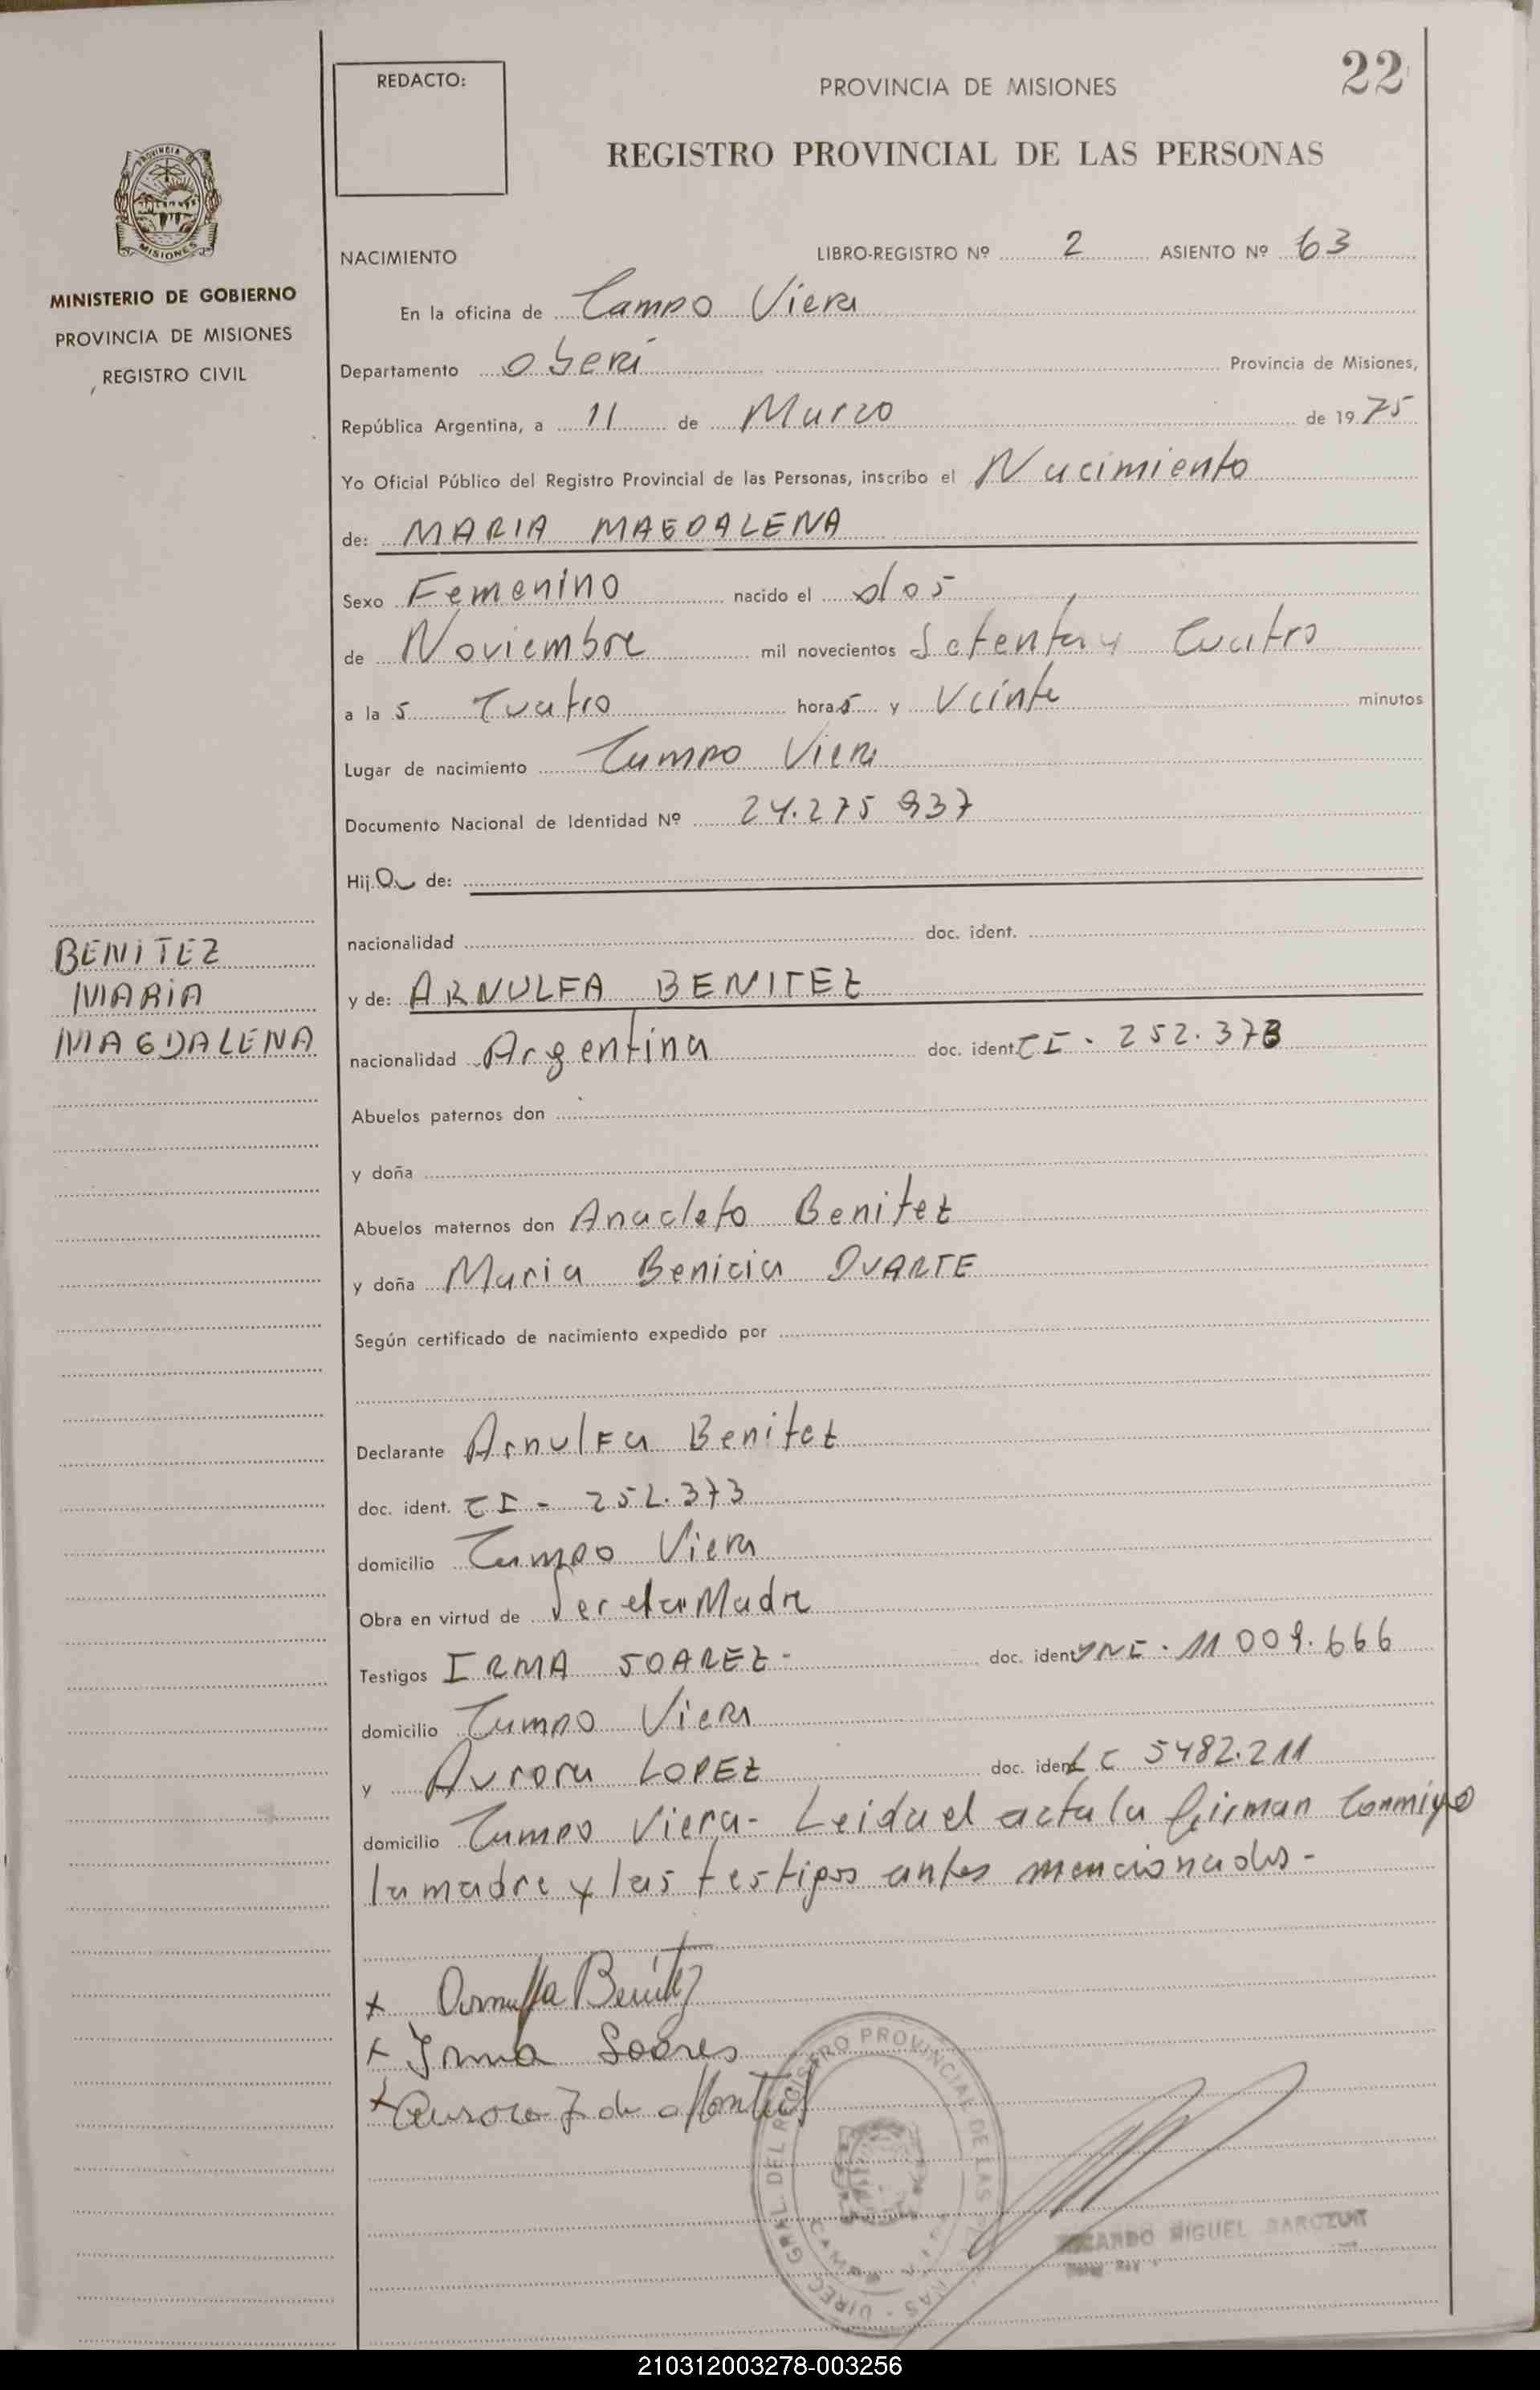 22
REDACTO:
PROVINCIA DE MISIONES
REGISTRO PROVINCIAL DE LAS PERSONAS
PROVINCIA
MISIONES
MINISTERIO DE GOBIERNO
PROVINCIA DE MISIONES
REGISTRO CIVIL
NACIMIENTO LIBRO-REGISTRO Nº 2 ASIENTO Nº 63
En la oficina de Campo Viera
Departamento Oberá Provincia de Misiones,
República Argentina, a 11 de Marzo de 1975
Yo Oficial Público del Registro Provincial de las Personas, inscribo el Nacimiento
de: MARIA MAGDALENA
Sexo Femenino nacido el dos
de Noviembre mil novecientos Setenta y Cuatro
a la s Cuatro horas y Veinte minutos
Lugar de nacimiento Campo Viera
Documento Nacional de Identidad Nº 24.275 937
Hija de:
nacionalidad doc. ident.
BENITEZ
MARIA
MAGDALENA
y de: ARNULFA BENITEZ
nacionalidad Argentina doc. ident. CI - 252.373
Abuelos paternos don
y doña
Abuelos maternos don Anacleto Benitez
y doña Maria Benicia DUARTE
Según certificado de nacimiento expedido por
Declarante Arnulfa Benitez
doc. ident. CI - 252.373
domicilio Campo Viera
Obra en virtud de Ser la Madre
Testigos IRMA SOAREZ - doc. ident. DNI. 11 009.666
domicilio Campo Viera
y Aurora LOPEZ doc. ident. LC 5482.211
domicilio Campo Viera - Leida el acta la firman Conmigo
la madre y las testigos antes mencionados -
x Arnulfa Benítez
x Irma Soares
x Aurora L de
DIREC. GRAL. DEL REGISTRO PROVINCIAL DE LAS PERSONAS
RICARDO MIGUEL
210312003278-003256